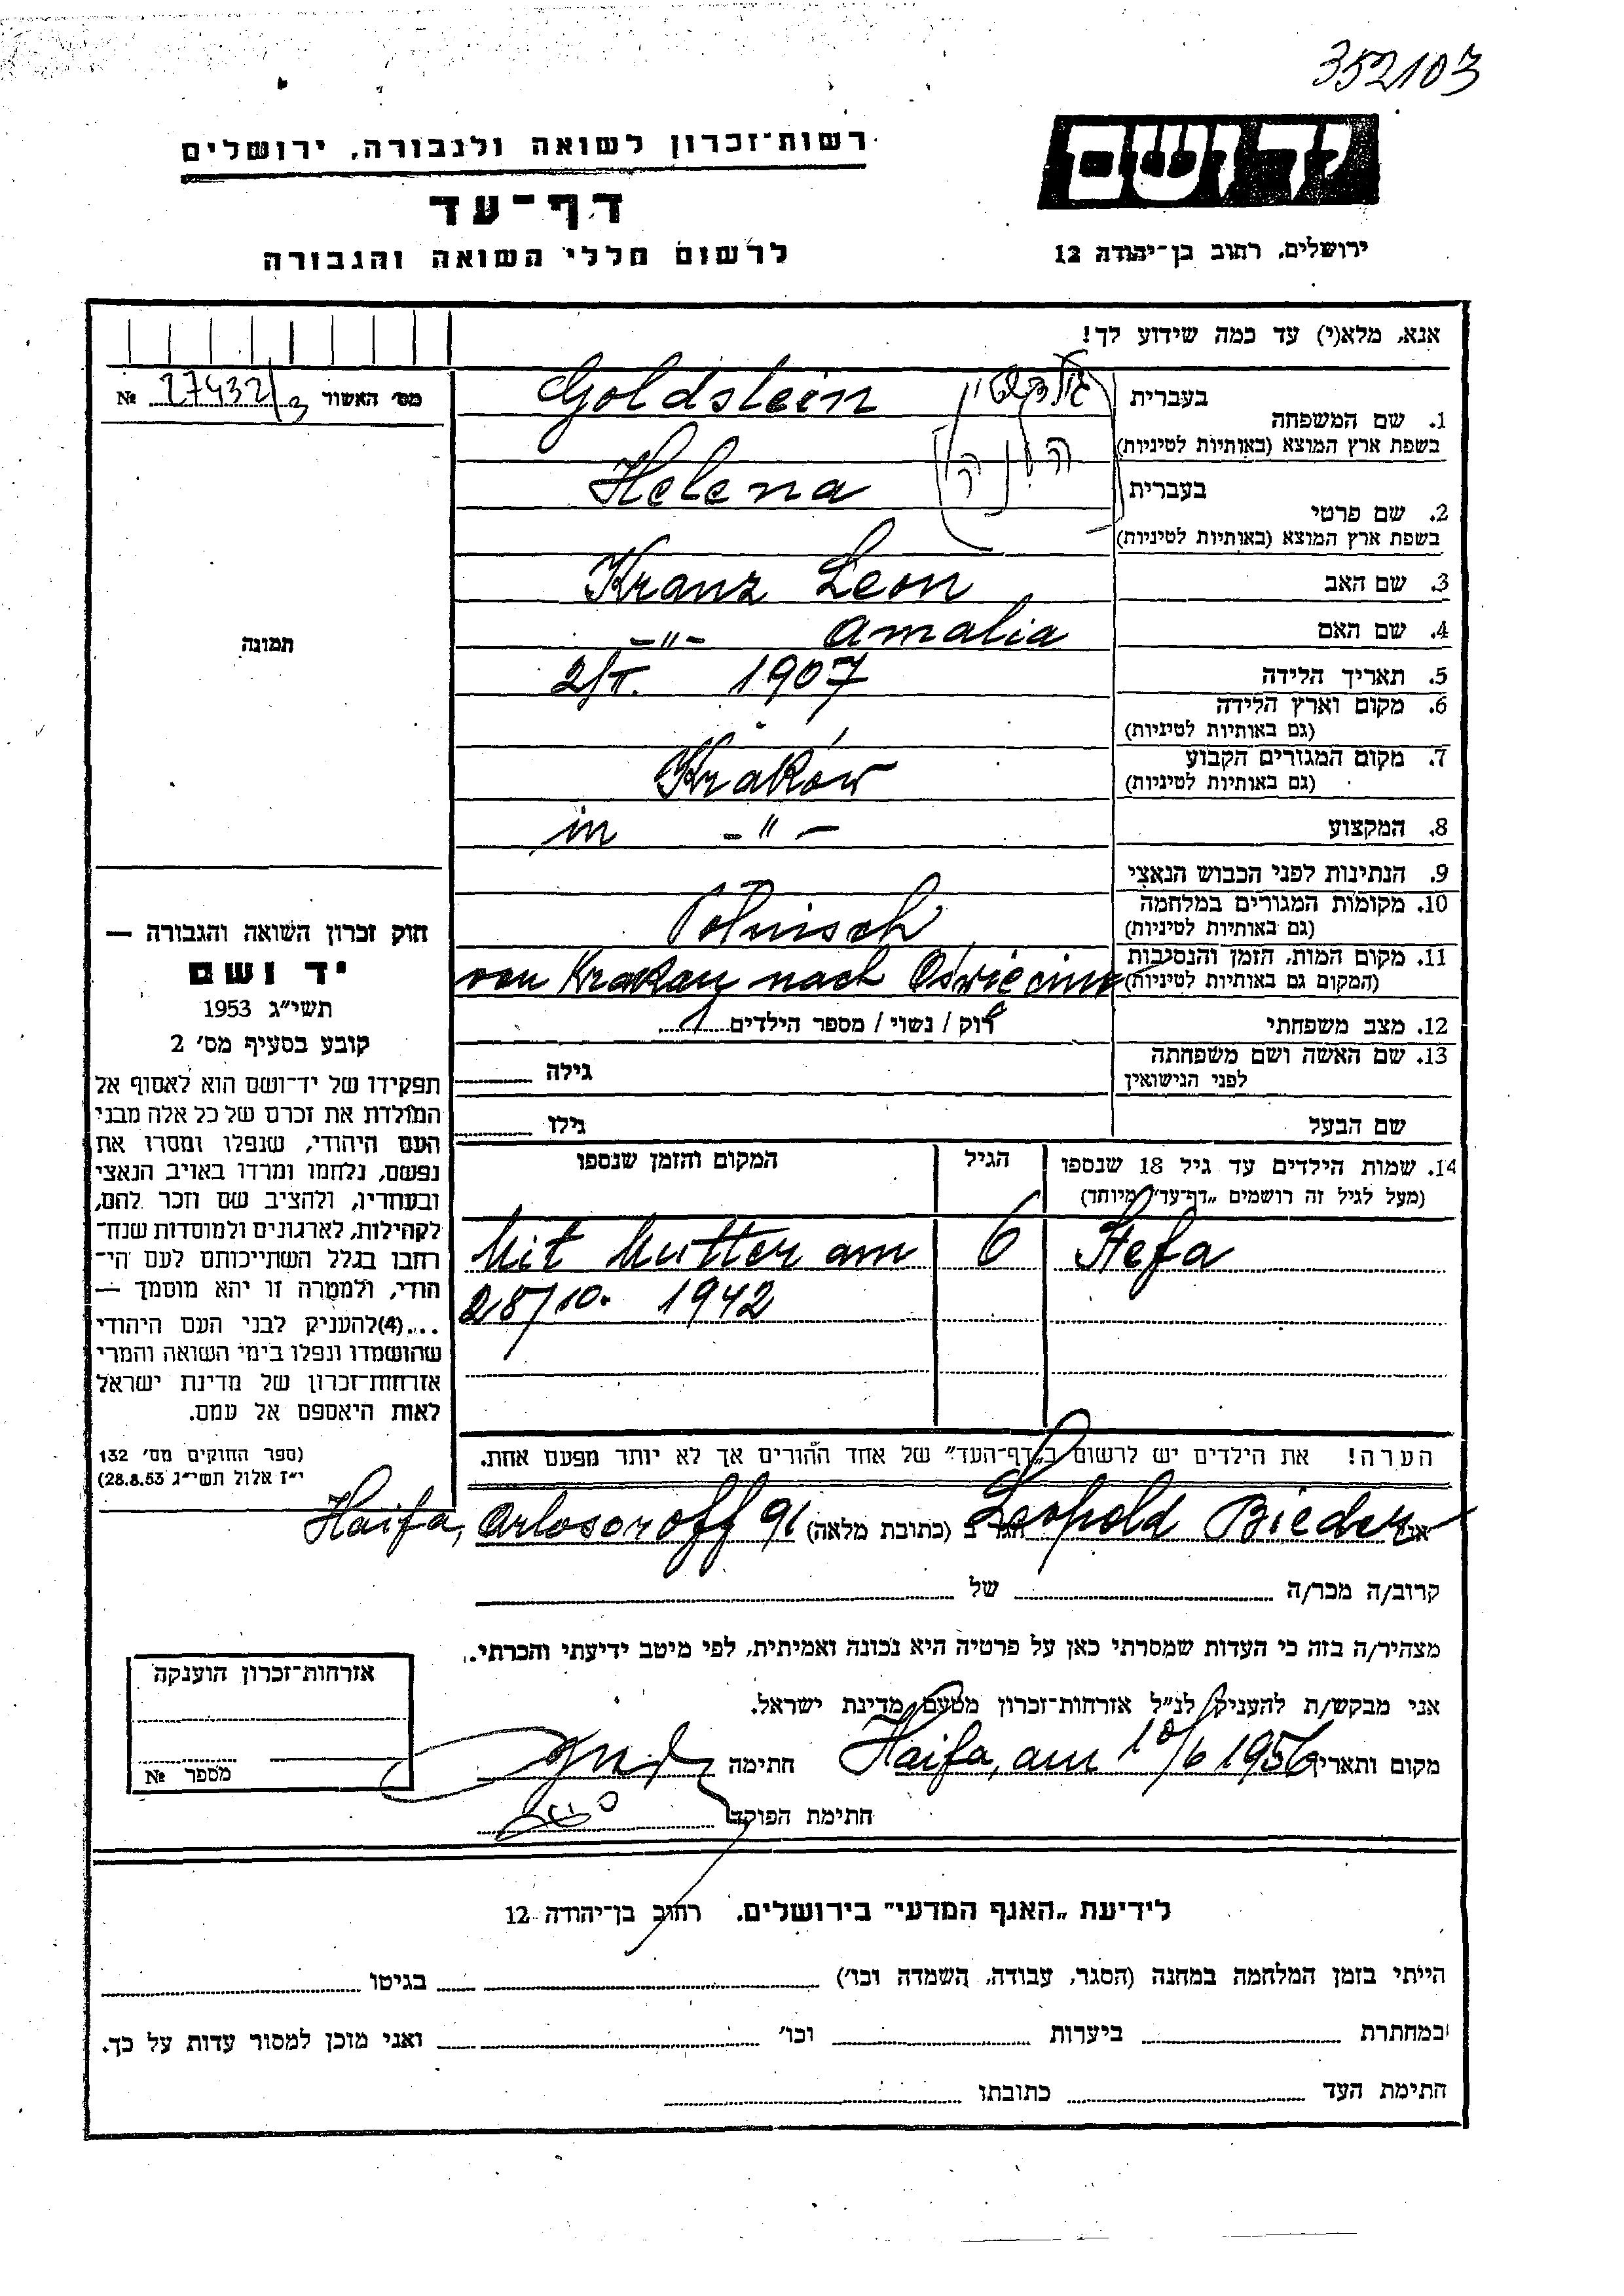 352103
יד ושם
רשות־זכרון לשואה ולגבורה, ירושלים
דף־עד
לרשום חללי השואה והגבורה
ירושלים, רחוב בן־יהודה 12
אנא, מלא(י) עד כמה שידוע לך!
מס׳ האשור 27432/3 №
1. שם המשפחה
בעברית גולדשטיין Goldstein
בשפת ארץ המוצא (באותיות לטיניות)
2. שם פרטי
בעברית הלנה Helena
בשפת ארץ המוצא (באותיות לטיניות)
3. שם האב Kranz Leon
4. שם האם -"- Amalia
5. תאריך הלידה 1907
6. מקום וארץ הלידה
(גם באותיות לטיניות)
7. מקום המגורים הקבוע
(גם באותיות לטיניות) Kraków
8. המקצוע in -"-
9. הנתינות לפני הכבוש הנאצי
10. מקומות המגורים במלחמה
(גם באותיות לטיניות) Polnisch
11. מקום המות, הזמן והנסיבות
(המקום גם באותיות לטיניות) von Krakau nach Oświęcim
12. מצב משפחתי רוק / נשוי / מספר הילדים
13. שם האשה ושם משפחתה
לפני הנישואין גילה
שם הבעל גילו
14. שמות הילדים עד גיל 18 שנספו הגיל המקום והזמן שנספו
(מעל לגיל זה רושמים „דף־עד״ מיוחד)
Stefa 6 Mit Mutter am
28/10. 1942
הערה! את הילדים יש לרשום ב„דף־העד״ של אחד ההורים אך לא יותר מפעם אחת.
תמונה
חוק זכרון השואה והגבורה —
יד ושם
תשי״ג 1953
קובע בסעיף מס׳ 2
תפקידו של יד־ושם הוא לאסוף אל
המולדת את זכרם של כל אלה מבני
העם היהודי, שנפלו ומסרו את
נפשם, נלחמו ומרדו באויב הנאצי
ובעוזריו, ולהציב שם וזכר להם,
לקהילות, לארגונים ולמוסדות שנח־
רבו בגלל השתייכותם לעם הי־
הודי, ולמטרה זו יהא מוסמך —
...(4)להעניק לבני העם היהודי
שהושמדו ונפלו בימי השואה והמרי
אזרחות־זכרון של מדינת ישראל
לאות היאספם אל עמם.
(ספר החוקים מס׳ 132
י״ז אלול תשי״ג 28.8.53)
אני Leopold Bieder הגר ב (כתובת מלאה) Haifa, Arlosoroff 91
קרוב/ה מכר/ה של
מצהיר/ה בזה כי העדות שמסרתי כאן על פרטיה היא נכונה ואמיתית, לפי מיטב ידיעתי והכרתי.
אני מבקש/ת להעניק לנ״ל אזרחות־זכרון מטעם מדינת ישראל.
מקום ותאריך Haifa, am 10/6 1956 חתימה
חתימת הפוקד
אזרחות־זכרון הוענקה
מספר №
לידיעת „האגף המדעי״ בירושלים. רחוב בן־יהודה 12
הייתי בזמן המלחמה במחנה (הסגר, עבודה, השמדה וכו׳) בגיטו
במחתרת ביערות וכו׳ ואני מוכן למסור עדות על כך.
חתימת העד כתובתו